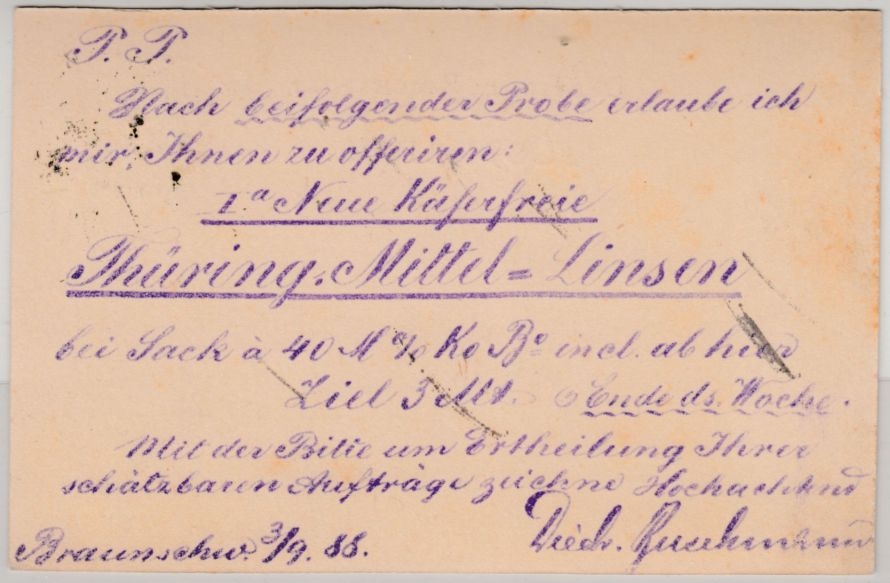 P. P.
Nach beifolgender Probe erlaube ich
mir, Ihnen zu offeriren:
Iª Neue Käferfreie
Thüring. Mittel=Linsen
bei Sack à 40 M % Ko Bº incl. ab hier
Ziel 3 Mt. Ende ds. Woche.
Mit der Bitte um Ertheilung Ihrer
schätzbaren Aufträge zeichne Hochachtend
Braunschw. 3/9. 88. Diedr.